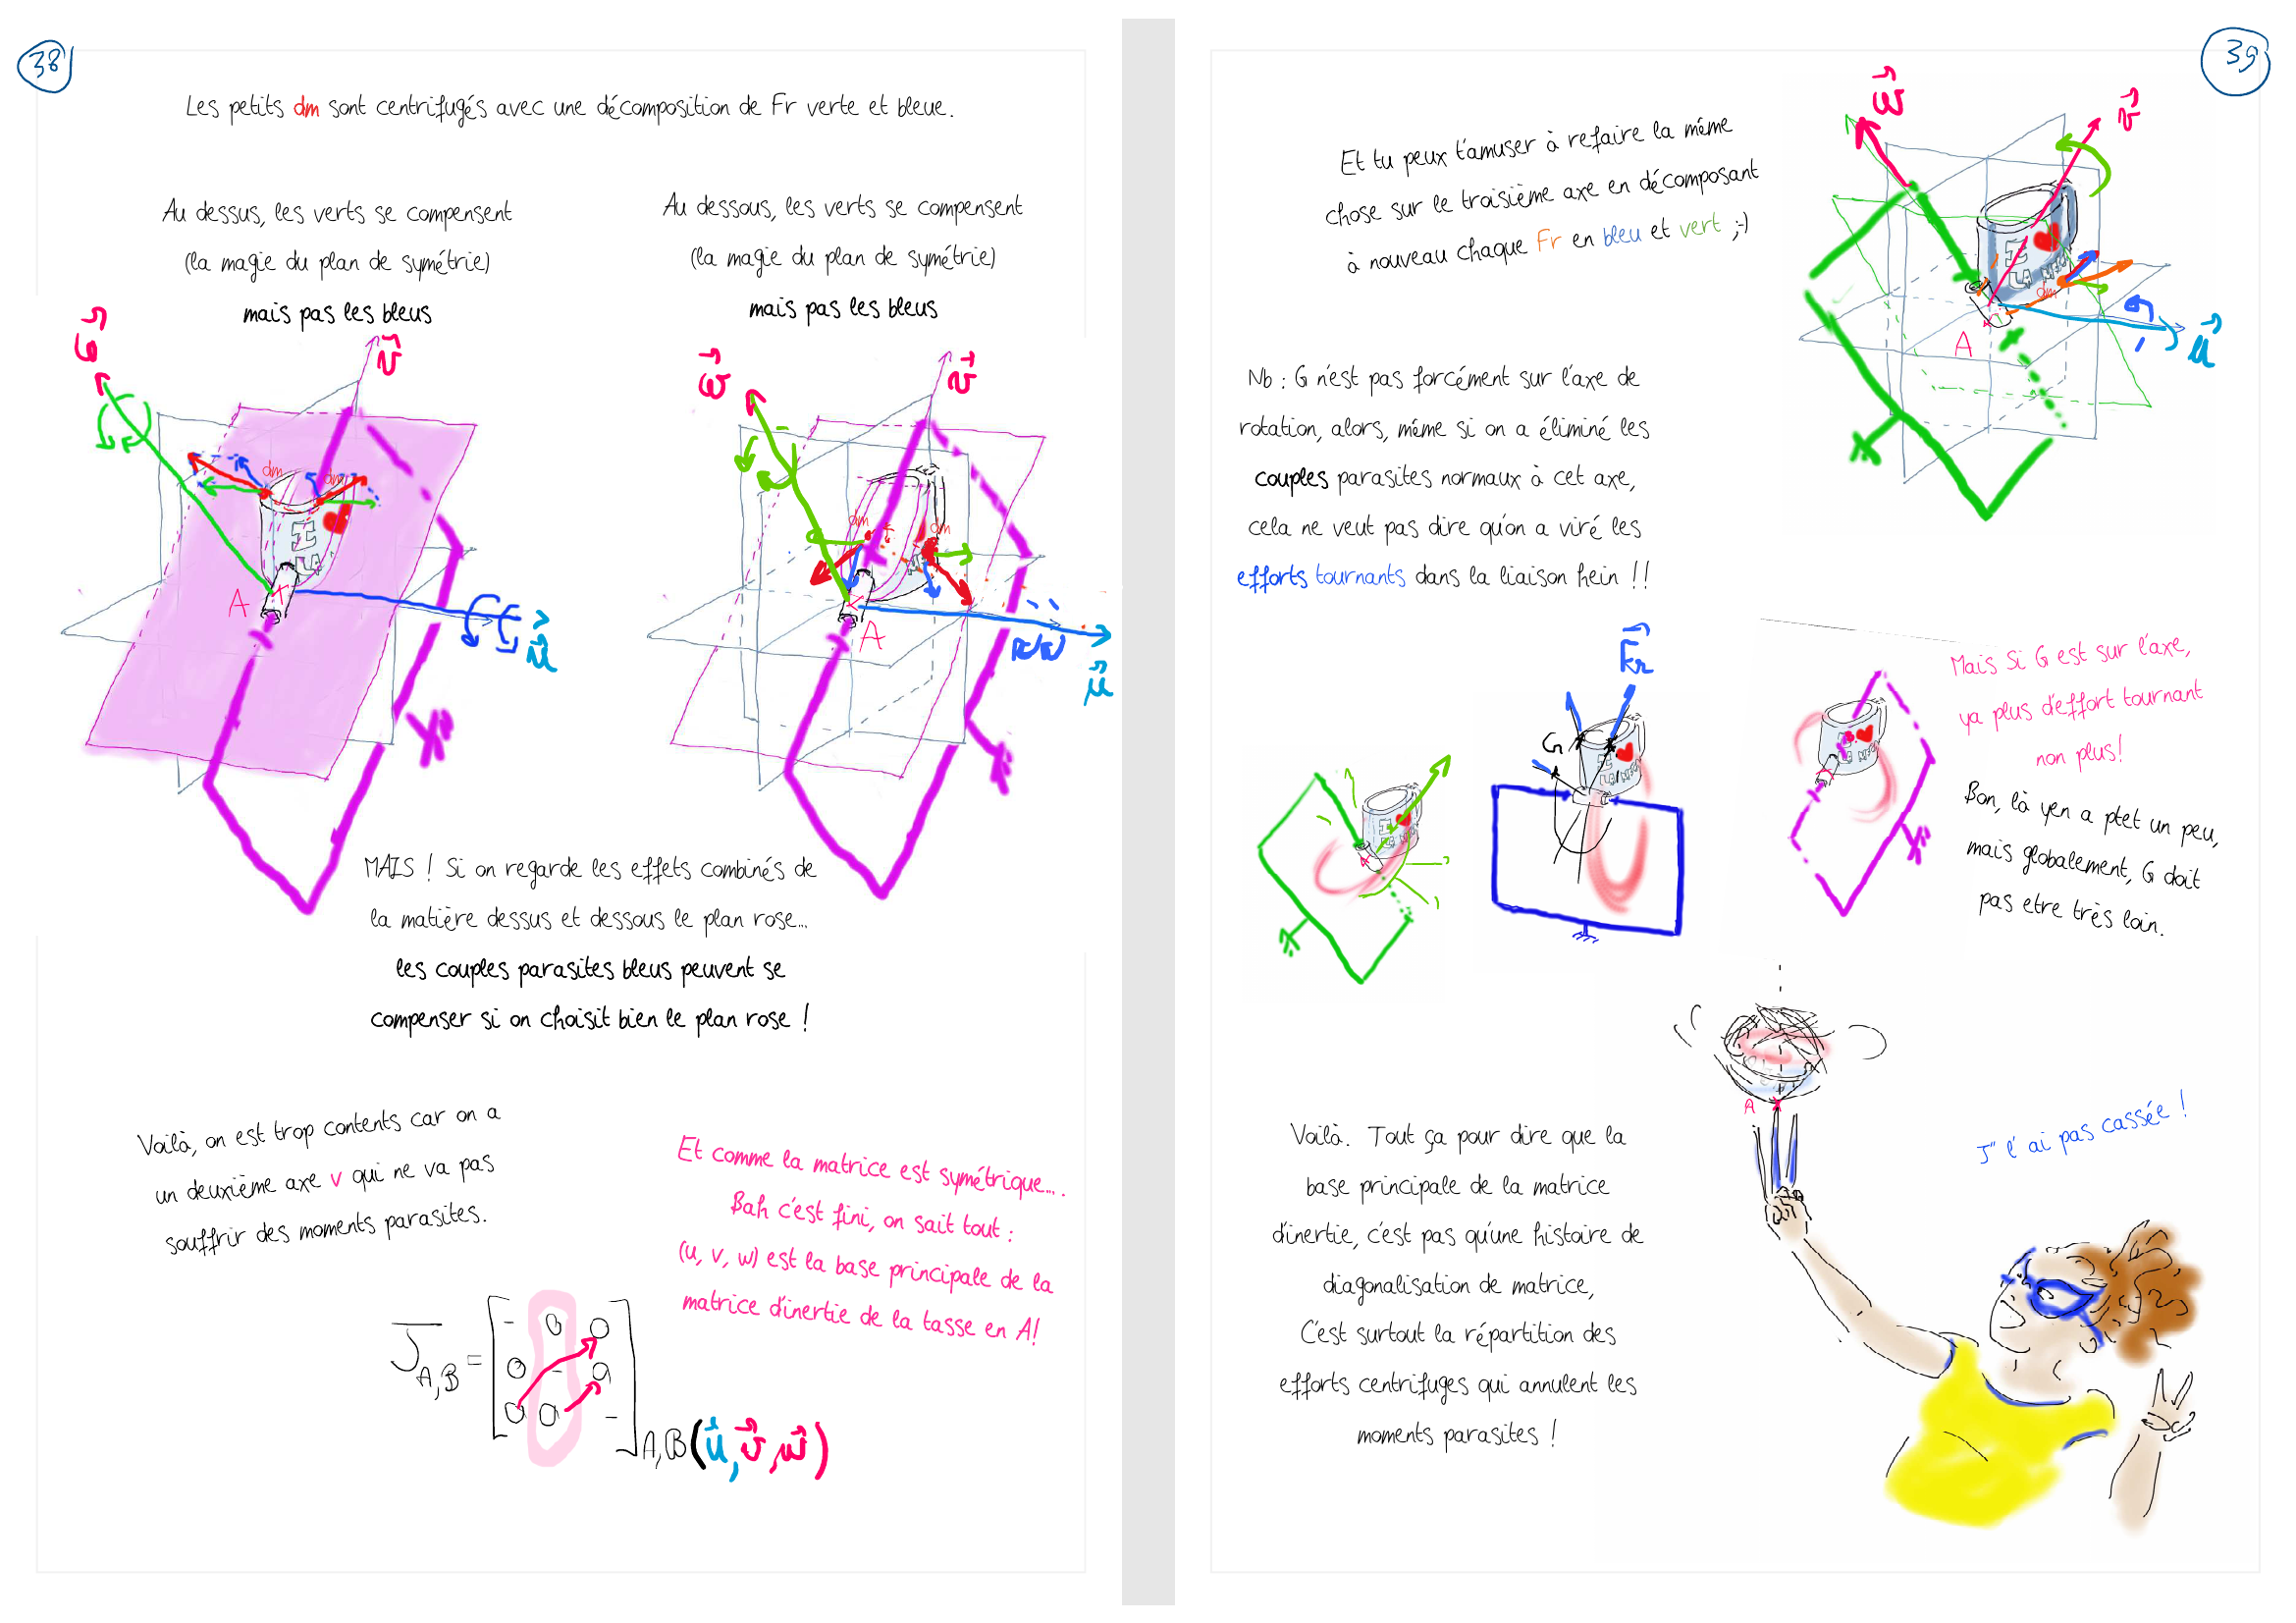 38
Les petits dm sont centrifugés avec une décomposition de Fr verte et bleue.
Au dessus, les verts se compensent
(la magie du plan de symétrie)
mais pas les bleus
Au dessous, les verts se compensent
(la magie du plan de symétrie)
mais pas les bleus
v
dm
dm
I
LA
A
u
w
v
dm
dm
A
u
MAIS ! Si on regarde les effets combinés de
la matière dessus et dessous le plan rose...
les couples parasites bleus peuvent se
compenser si on choisit bien le plan rose !
Voilà, on est trop contents car on a
un deuxième axe v qui ne va pas
souffrir des moments parasites.
Et comme la matrice est symétrique....
Bah c'est fini, on sait tout :
(u, v, w) est la base principale de la
matrice d'inertie de la tasse en A!
J A,B =
- 0 0
0 - 0
0 0 -
A,B(u,v,w)
39
Et tu peux t'amuser à refaire la même
chose sur le troisième axe en décomposant
à nouveau chaque Fr en bleu et vert ;-)
w
v
I
LA MEC
dm
A
u
Nb : G n'est pas forcément sur l'axe de
rotation, alors, même si on a éliminé les
couples parasites normaux à cet axe,
cela ne veut pas dire qu'on a viré les
efforts tournants dans la liaison hein !!
Fr
G
Mais Si G est sur l'axe,
ya plus d'effort tournant
non plus!
Bon, là yen a ptet un peu,
mais globalement, G doit
pas etre très loin.
A
J' l' ai pas cassée !
Voilà. Tout ça pour dire que la
base principale de la matrice
d'inertie, c'est pas qu'une histoire de
diagonalisation de matrice,
C'est surtout la répartition des
efforts centrifuges qui annulent les
moments parasites !